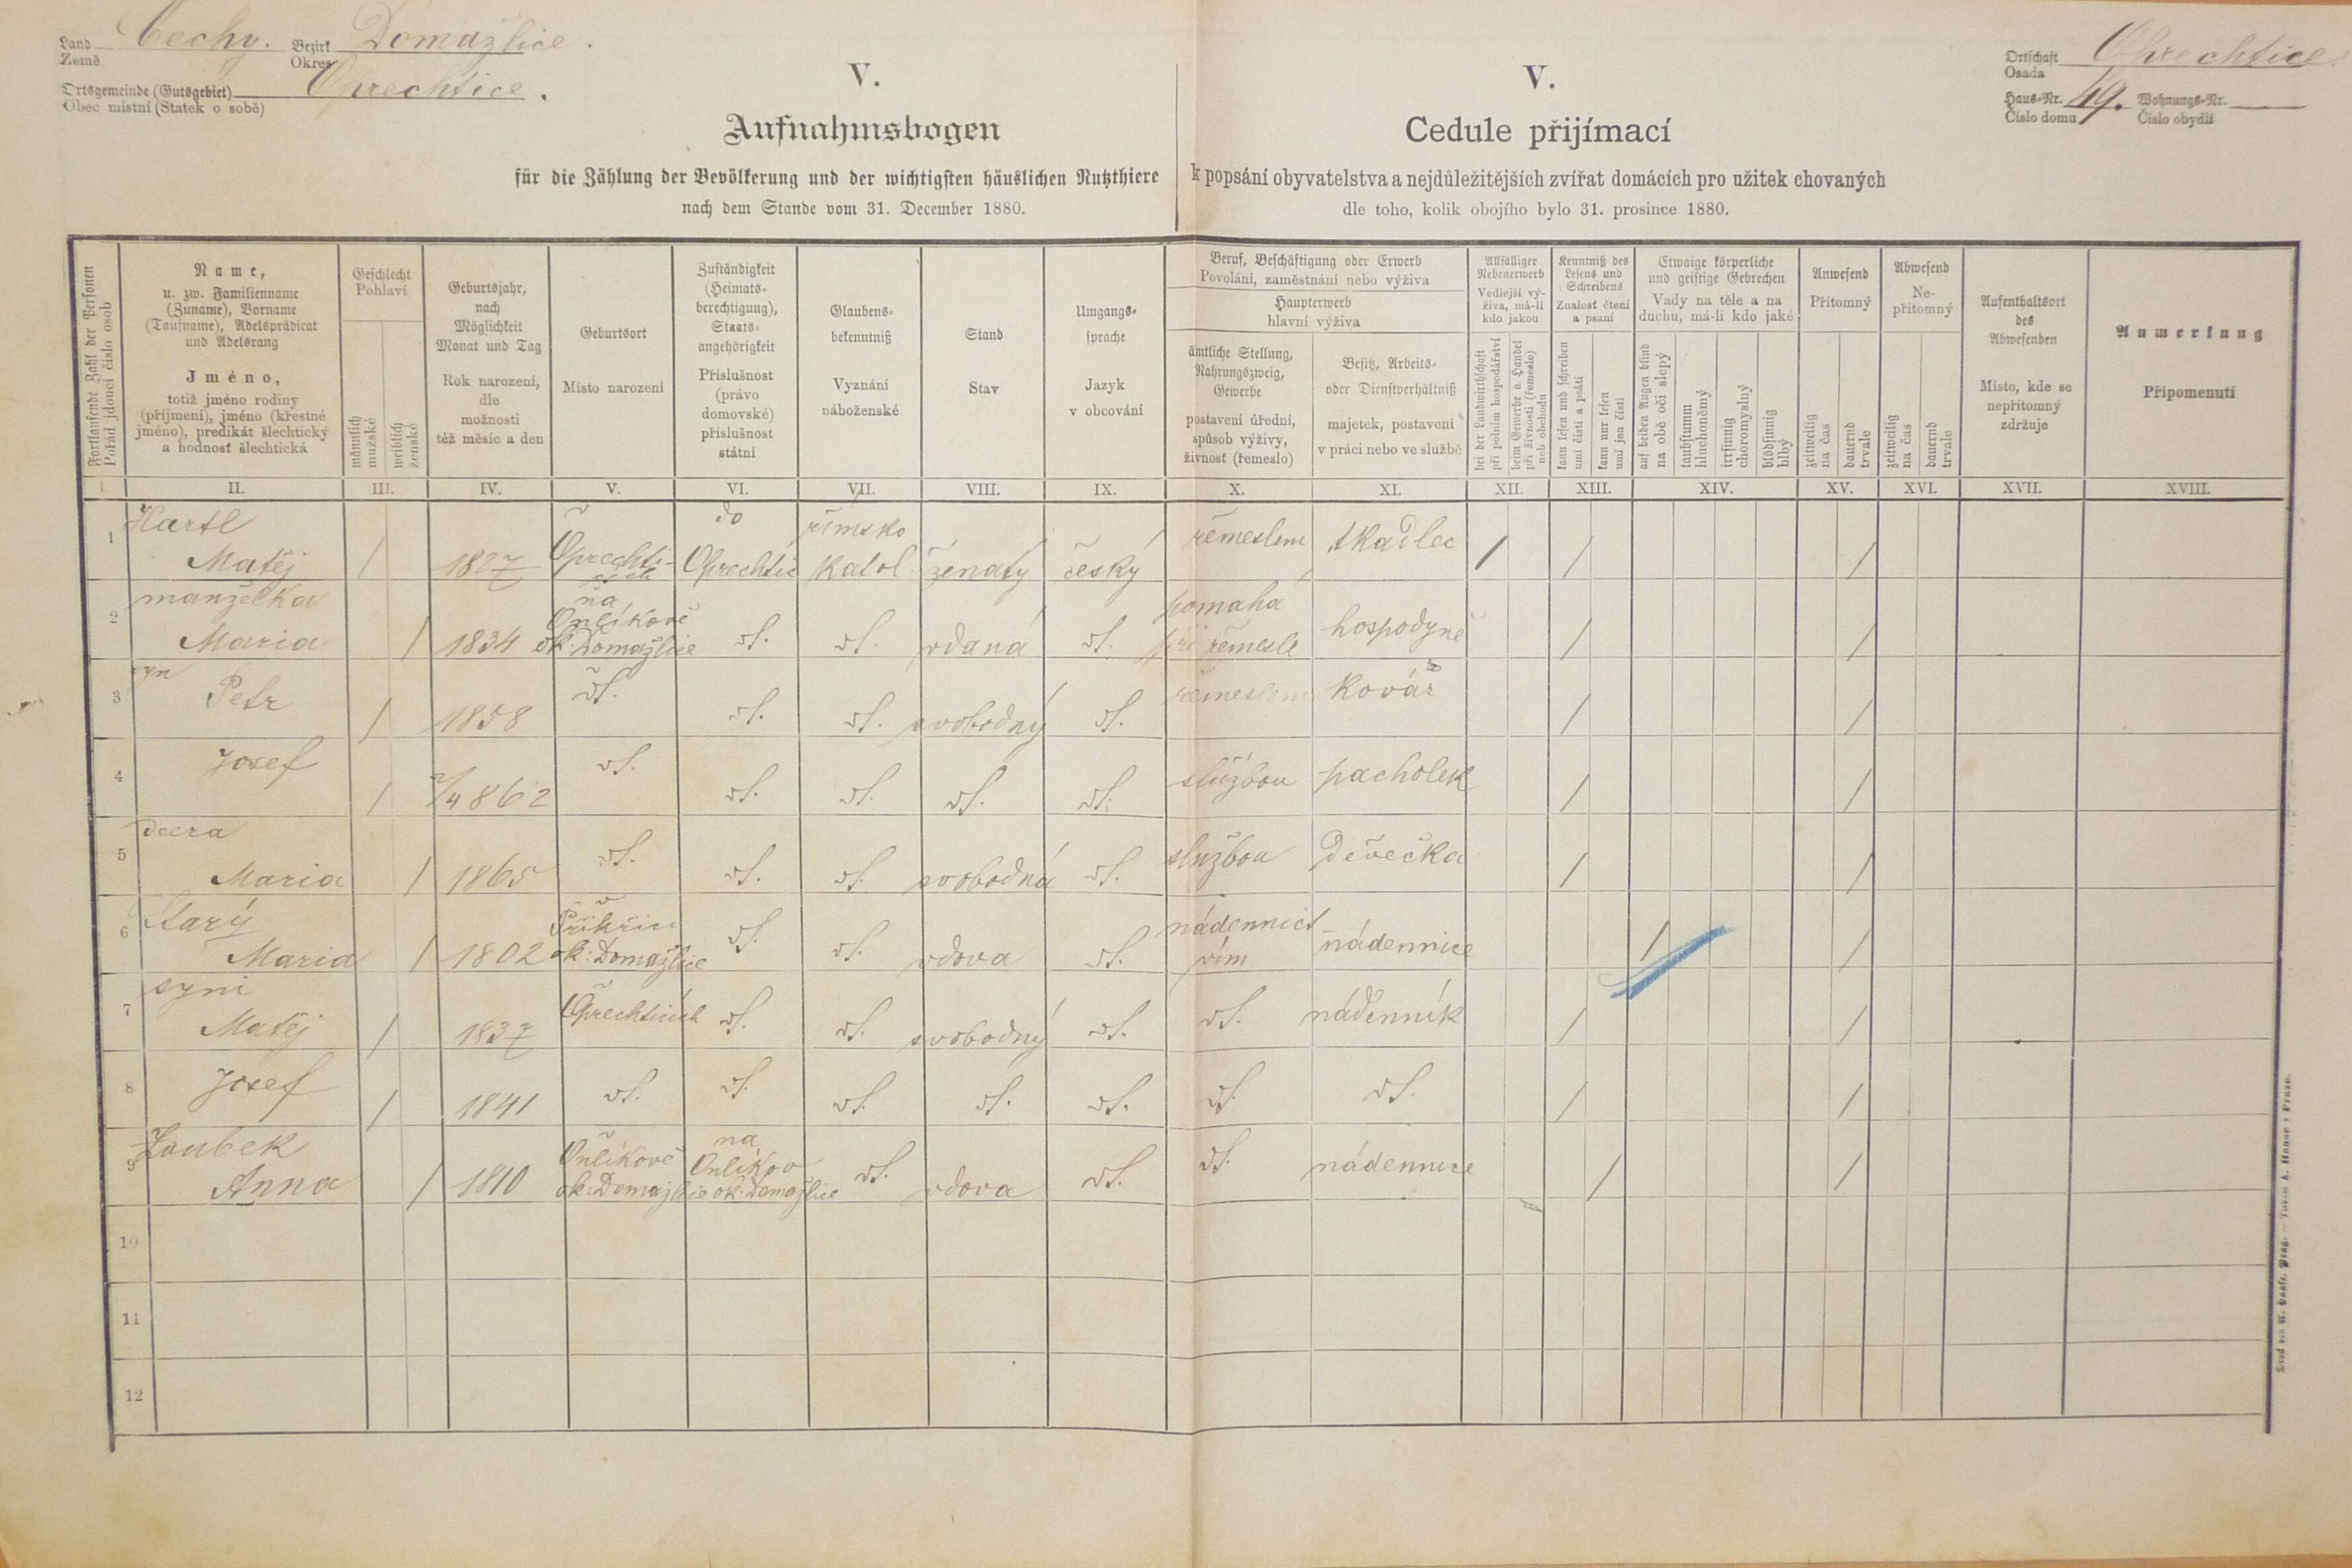 Land Země Čechy. Bezirk Okres Domažlice.
Ortsgemeinde (Gutsgebiet) Obec místní (Statek o sobě) Oprechtice.
Ortschaft Osada Oprechtice
Haus-Nr. Číslo domu 49. Wohnungs-Nr. Číslo obydlí
V.
Aufnahmsbogen
für die Zählung der Bevölkerung und der wichtigsten häuslichen Nutzthiere
nach dem Stande vom 31. December 1880.
V.
Cedule přijímací
k popsání obyvatelstva a nejdůležitějších zvířat domácích pro užitek chovaných
dle toho, kolik obojího bylo 31. prosince 1880.
Fortlaufende Zahl der Personen
Pořád jdoucí číslo osob
Name,
u. zw. Familienname
(Zuname), Vorname
(Taufname), Adelsprädicat
und Adelsrang
Jméno,
totiž jméno rodiny
(příjmení), jméno (křestné
jméno), predikát šlechtický
a hodnosť šlechtická
Geschlecht
Pohlaví
männlich
mužské
weiblich
ženské
Geburtsjahr,
nach
Möglichkeit
Monat und Tag
Rok narození,
dle
možnosti
též měsíc a den
Geburtsort
Místo narození
Zuständigkeit
(Heimats-
berechtigung),
Staats-
angehörigkeit
Příslušnost
(právo
domovské)
příslušnost
státní
Glaubens-
bekenntniß
Vyznání
náboženské
Stand
Stav
Umgangs-
sprache
Jazyk
v obcování
Beruf, Beschäftigung oder Erwerb
Povolání, zaměstnání nebo výživa
Haupterwerb
hlavní výživa
ämtliche Stellung,
Nahrungszweig,
Gewerbe
postavení úřední,
spůsob výživy,
živnosť (řemeslo)
Besitz, Arbeits-
oder Dienstverhältniß
majetek, postavení
v práci nebo ve službě
Allfälliger
Nebenerwerb
Vedlejší vý-
živa, má-li
kdo jakou
bei der Landwirthschaft
při polním hospodářství
beim Gewerbe o. Handel
při živnosti (řemesle)
neb obchodu
Kenntniß des
Lesens und
Schreibens
Znalosť čtení
a psaní
kann lesen und schreiben
umí čísti a psáti
kann nur lesen
umí jen čísti
Etwaige körperliche
und geistige Gebrechen
Vady na těle a na
duchu, má-li kdo jaké
auf beiden Augen blind
na obě oči slepý
taubstumm
hluchoněmý
irrsinnig
choromyslný
blödsinnig
blbý
Anwesend
Přítomný
zeitweilig
na čas
dauernd
trvale
Abwesend
Ne-
přítomný
zeitweilig
na čas
dauernd
trvale
Aufenthaltsort
des
Abwesenden
Místo, kde se
nepřítomný
zdržuje
Anmerkung
Připomenutí
I. II. III. IV. V. VI. VII. VIII. IX. X. XI. XII. XIII. XIV. XV. XVI. XVII. XVIII.
Hartl do římsko řemeslem tkadlec
1 Matěj / 1827 Oprechticích Oprechtic katol. ženatý český / / /
manželka na Onlíkově pomaha
2 Maria / 1834 ok: Domažlice vl. vl. vdaná vl. při řemesle hospodyně / /
syn
3 Petr / 1858 vl. vl. vl. svobodný vl. řemeslem kovář / /
4 Josef / 7/4 862 vl. vl. vl. vl. vl. službou pacholek / /
dcera
5 Maria / 1865 vl. vl. vl. svobodná vl. službou děvečka / /
Starý
6 Maria / 1802 ok: Domažlice vl. vl. vdova vl. nádennictvím nádennice / /
syni
7 Matěj / 1837 Oprechticích vl. vl. svobodný vl. vl. nádenník / /
8 Josef / 1841 vl. vl. vl. vl. vl. vl. vl. / /
Zoubek Onlíkově na Onlíkov
9 Anna / 1810 ok: Domažlice ok. Domažlice vl. vdova vl. vl. nádennice / /
10
11
12